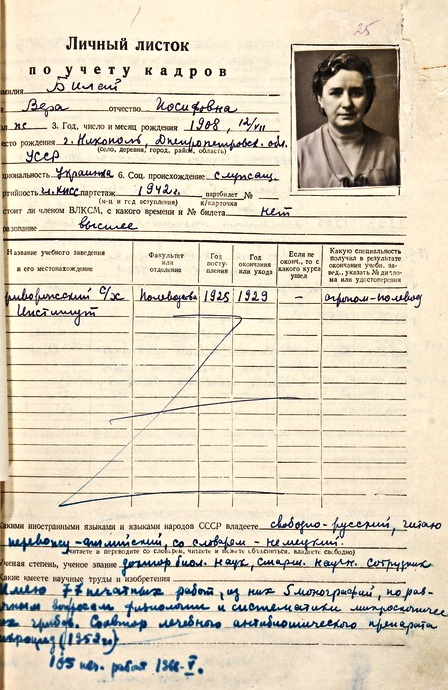 25
Личный листок
по учету кадров
амилия Билай
Вера отчество Иосифовна
ол жс 3. Год, число и месяц рождения 1908, 12/VII
есто рождения г. Никополь, Днепропетровск. обл.
(село, деревня, город, район, область)
УССР
циональность Украинка 6. Соц. происхождение служащ.
артийность чл. КПСС партстаж 1942 г. партбилет №
(м-ц и год вступления) к/карточка
стоит ли членом ВЛКСМ, с какого времени и № билета нет
разование высшее
Название учебного заведения и его местонахождение
Факультет или отделение
Год поступления
Год окончания или ухода
Если не оконч., то с какого курса ушел
Какую специальность получил в результате окончания учебн. завед., указать № диплома или удостоверения
с/х Полеводства 1925 1929 — агроном-полевод
Институт
Какими иностранными языками и языками народов СССР владеете свободно-русский, читаю
перевожу-английский, со словарем-немецкий.
(читаете и переводите со словарем, читаете и можете объясняться, владеете свободно)
Ученая степень, ученое звание доктор биол. наук, старш. научн. сотрудник
Какие имеете научные труды и изобретения
Имею 77 печатных работ, из них 5 монографий, по раз-
чным вопросам физиологии и систематики микроскопичес
их грибов. Соавтор лечебного антибиотического препарата
икроцид (1952 г)
165 печ. работ 1966-V.